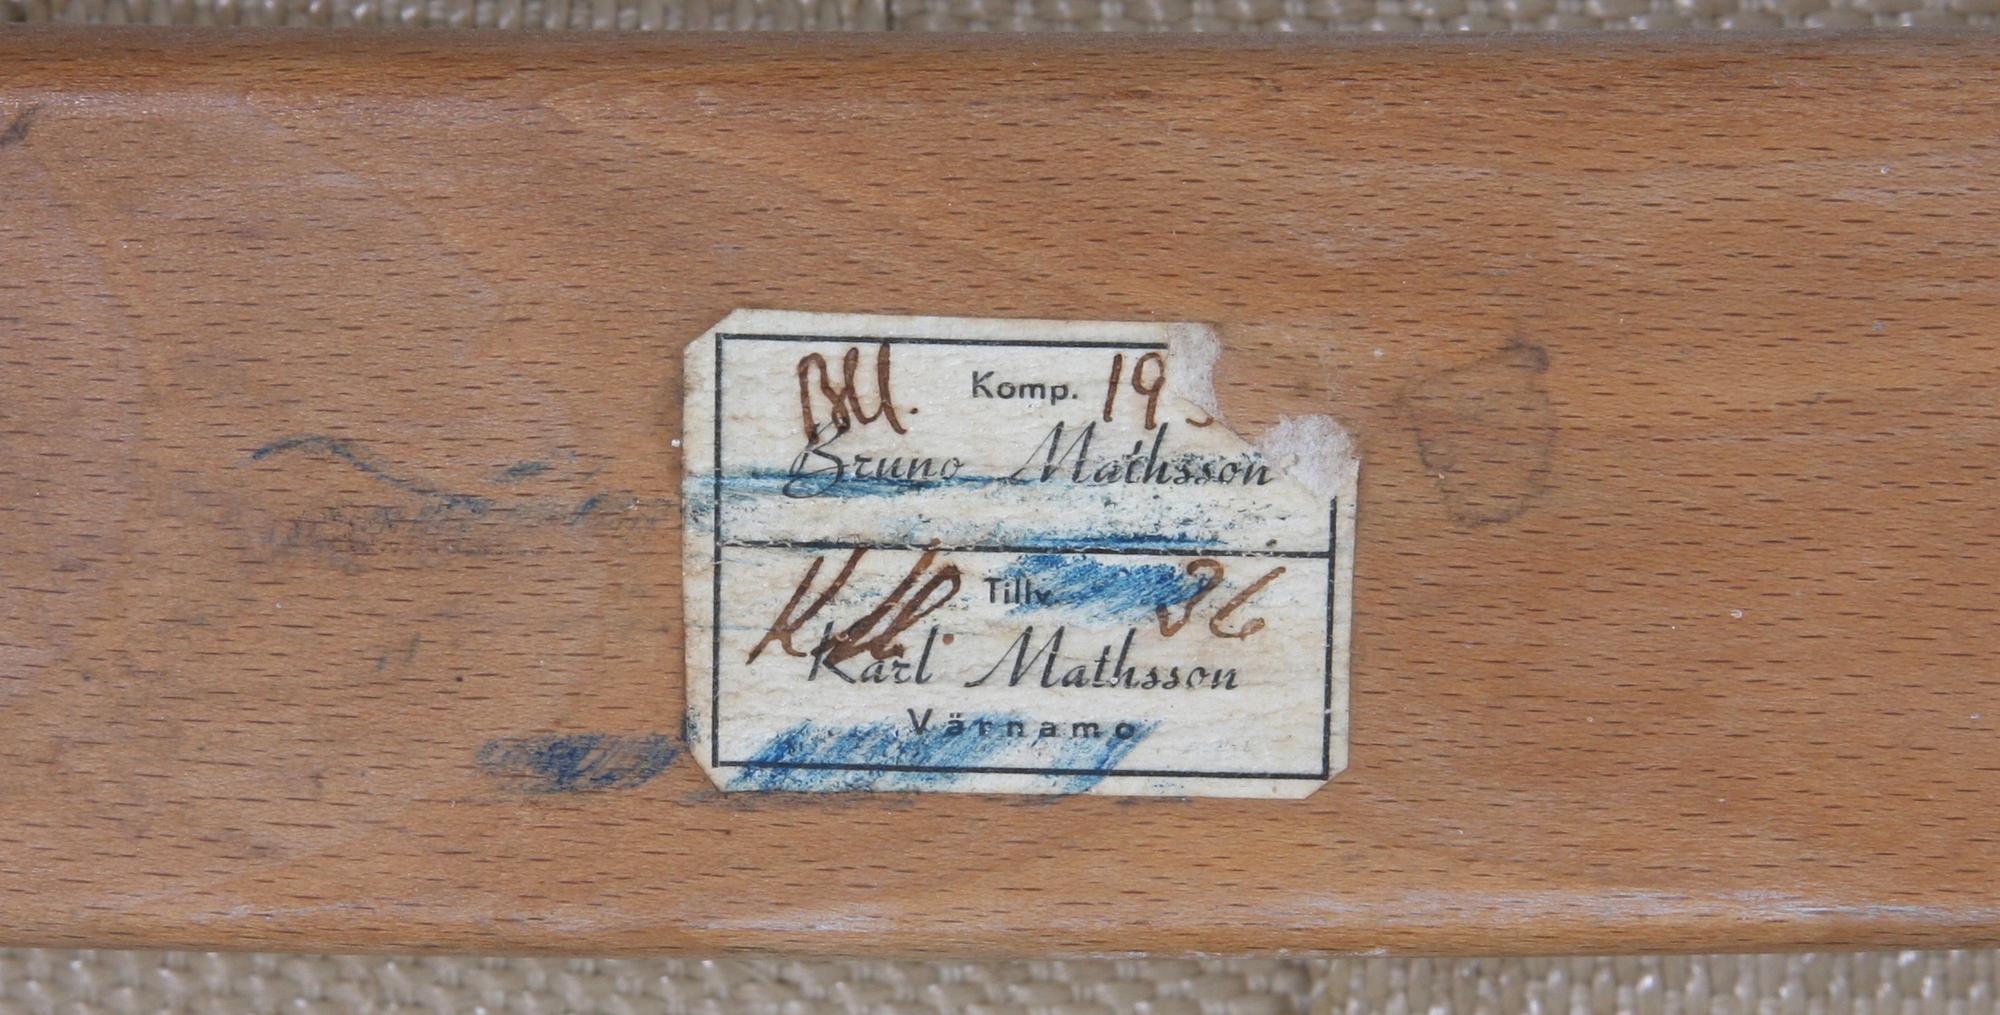 BM. Komp. 19
Bruno Mathsson
KM. Tillv. 36
Karl Mathsson
Värnamo